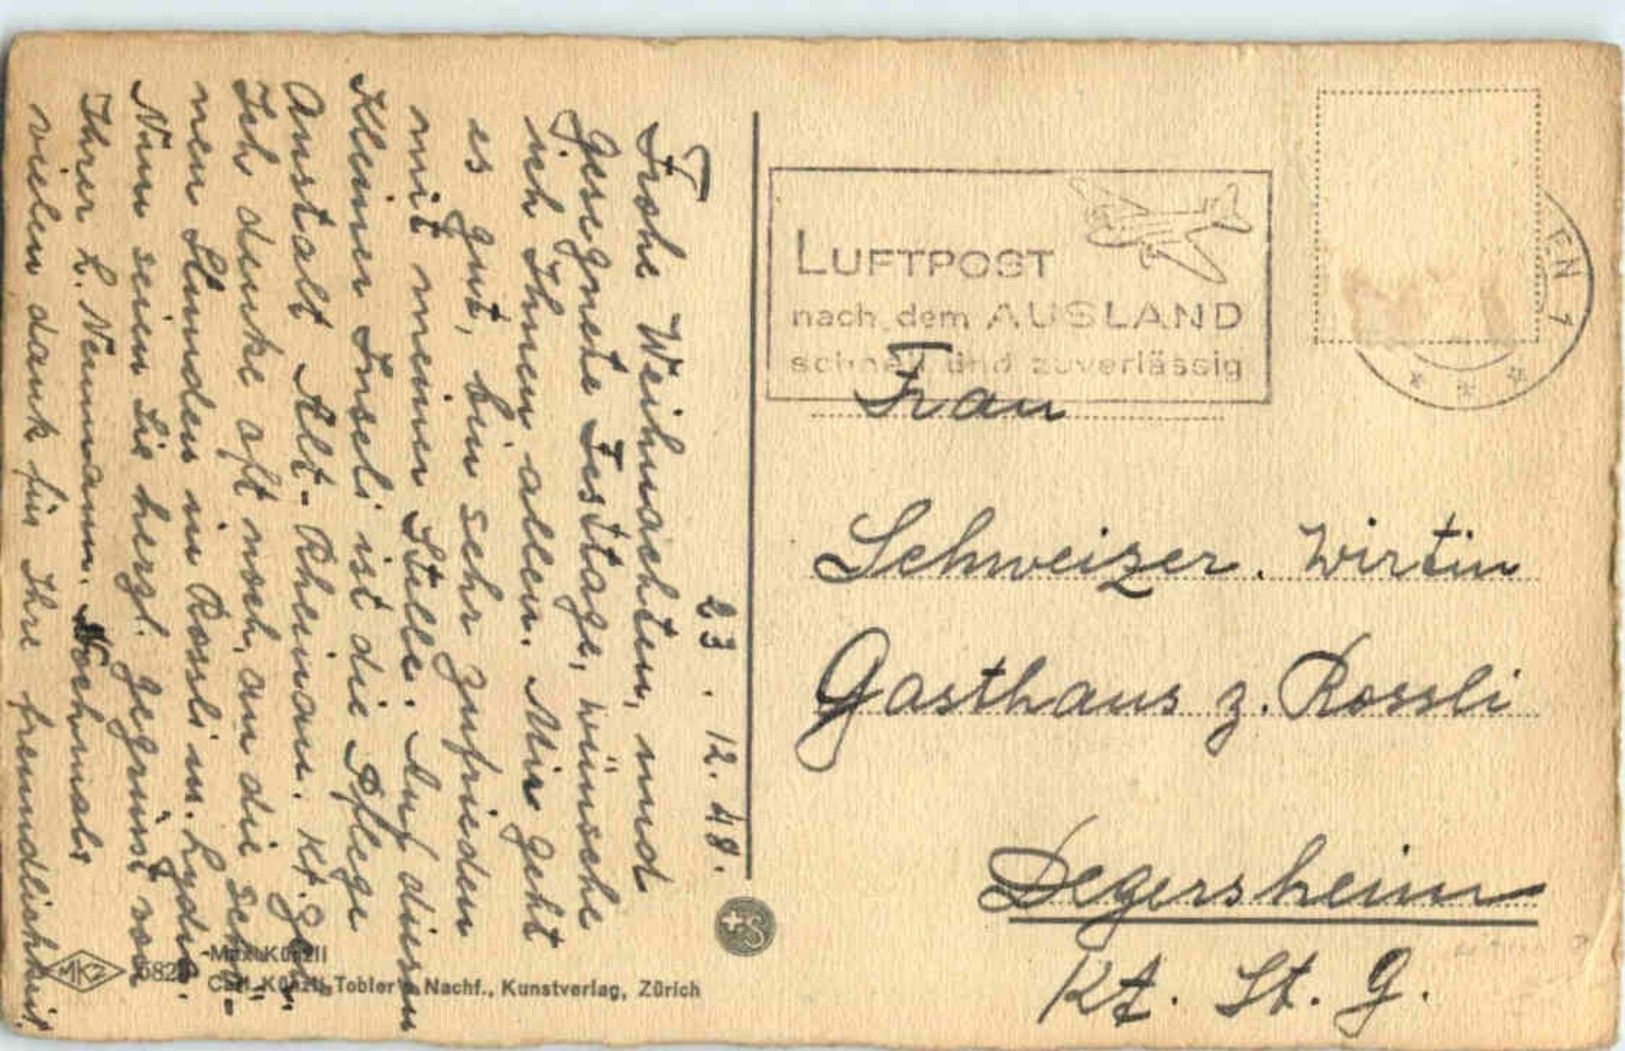 23. 12. 48.
Frohe Weihnachten, und
gesegnete Festtage, wünsche
ich Ihnen allen. Mir geht
es gut, bin sehr zufrieden
mit meiner Stelle. Auf diesem
Kleinen Inseli ist die Pflege
Anstalt Alt-Rheinau. Kt. Zch.
Ich denke oft noch, an die schö-
nen Stunden im Rössli m. Lydia.
Nun seien Sie herzl. gegrüsst von
Ihrer L. Neumann. Nochmals
vielen dank für Ihre freundlichkeit.
LUFTPOST
nach dem AUSLAND
schnell und zuverlässig
EN 1
Frau
Schweizer. Wirtin
Gasthaus z. Rössli
Degersheim
Kt. St. G.
+S
MKZ
Max Künzli
Carl Künzli-Tobler's Nachf., Kunstverlag, Zürich